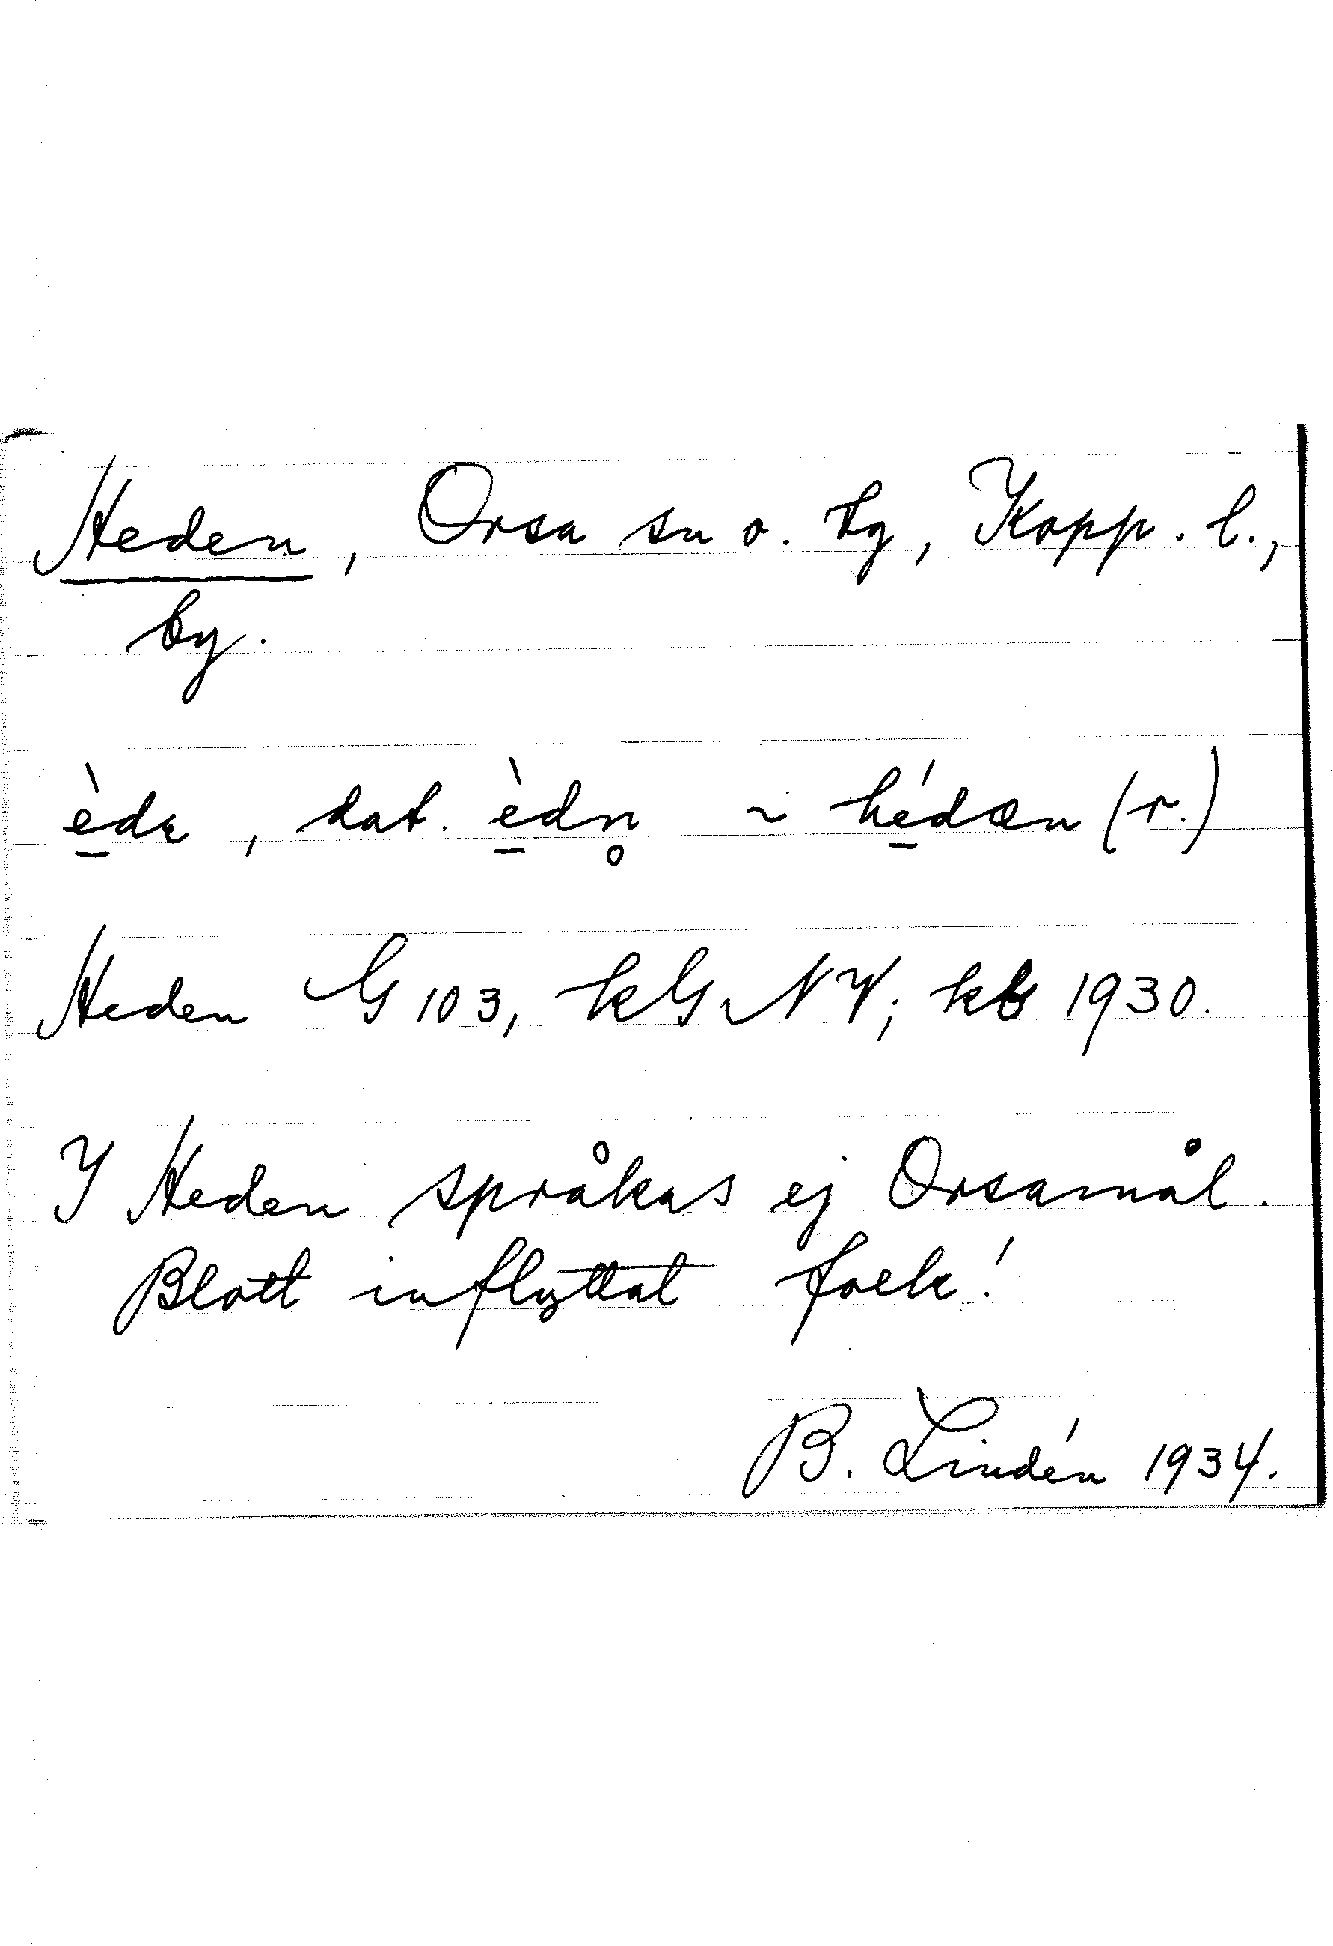 Heden, Orsa sn o. tg, Kopp. l.,
by.
è̱da, dat. è̱dn̥ ~ hé̱dæn (r.)
Heden G 103, kG NV; kb 1930.
I Heden språkas ej Orsamål.
Blott inflyttat folk!
B. Lindén 1934.